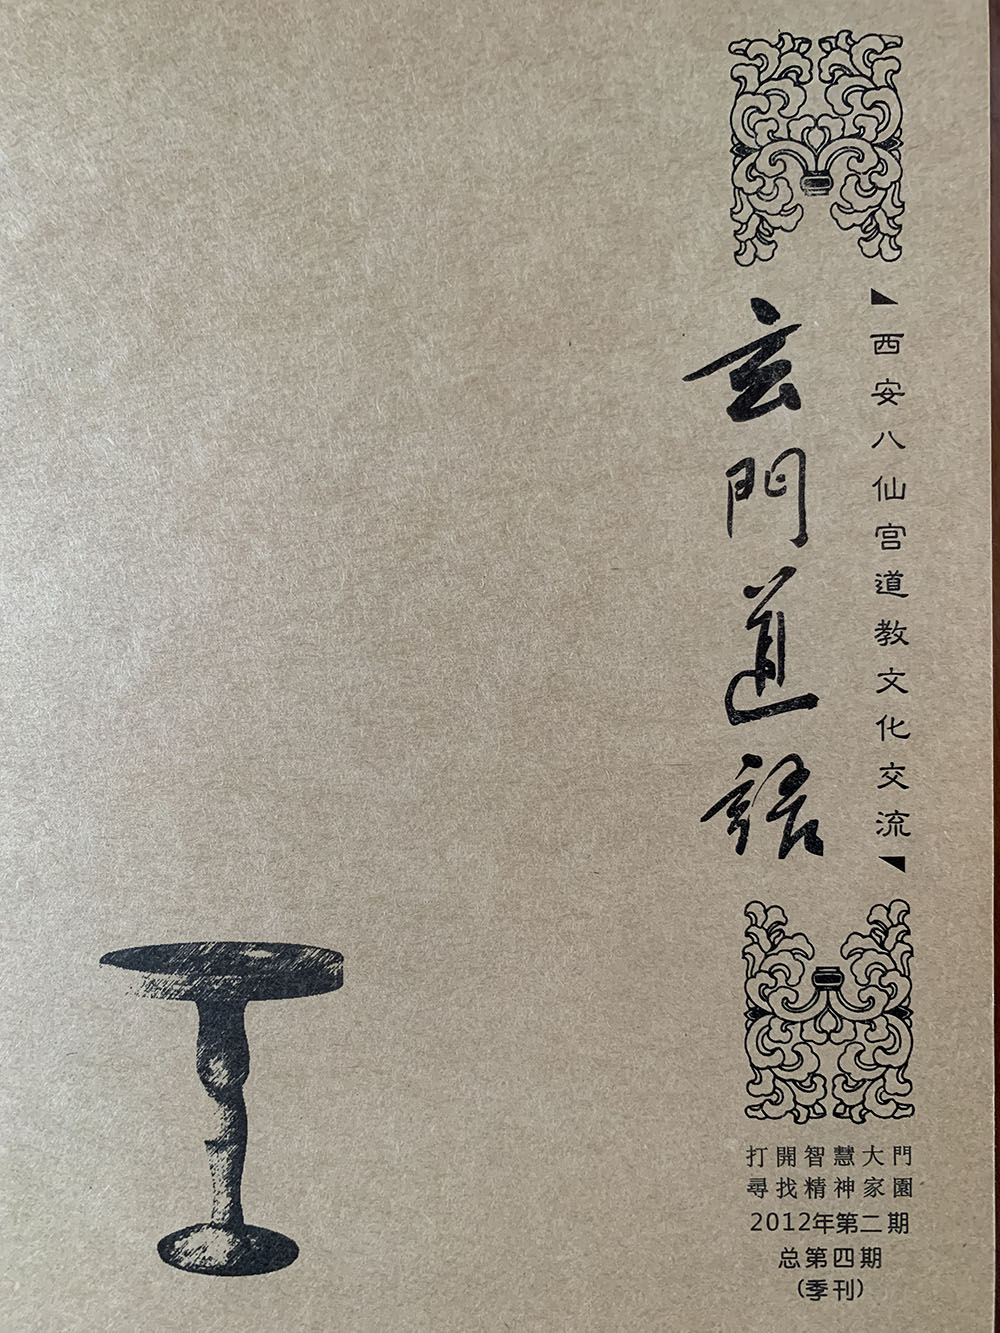 西安八仙宫道教文化交流
玄門道語
打開智慧大門
尋找精神家園
2012年第二期
总第四期
(季刊)